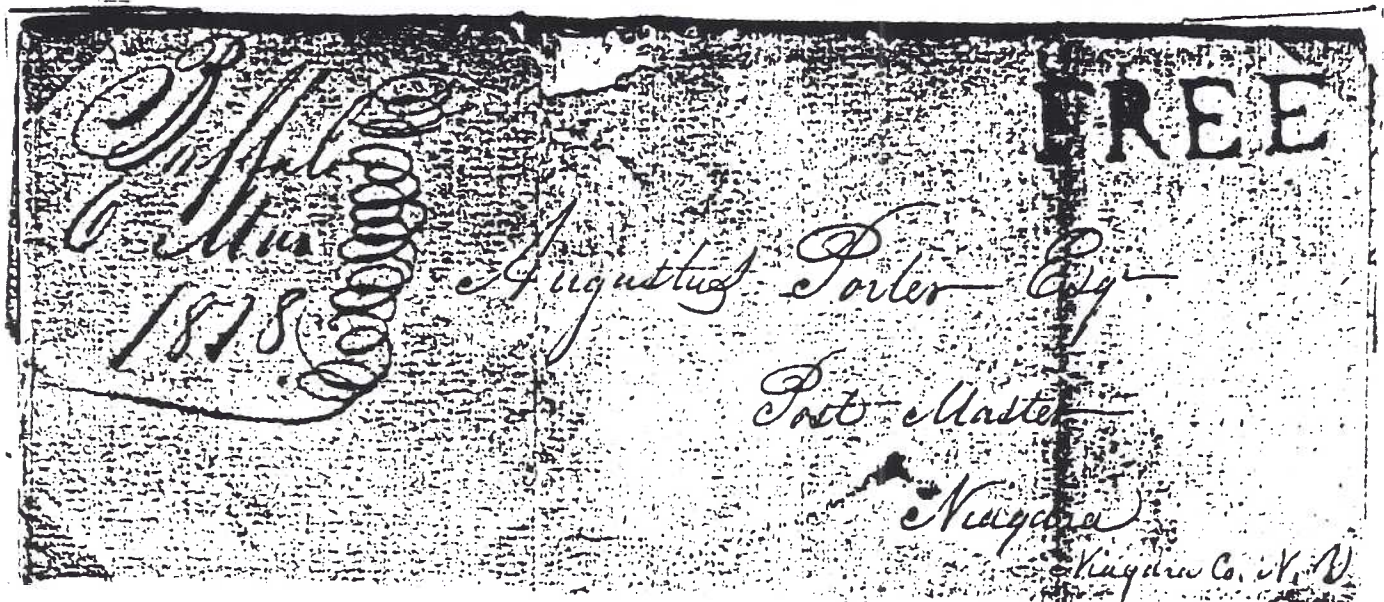 Buffalo
6 Mar
1818
FREE
Augustus Porter Esqr.
Post Master
Niagara
Niagara Co. N. Y.